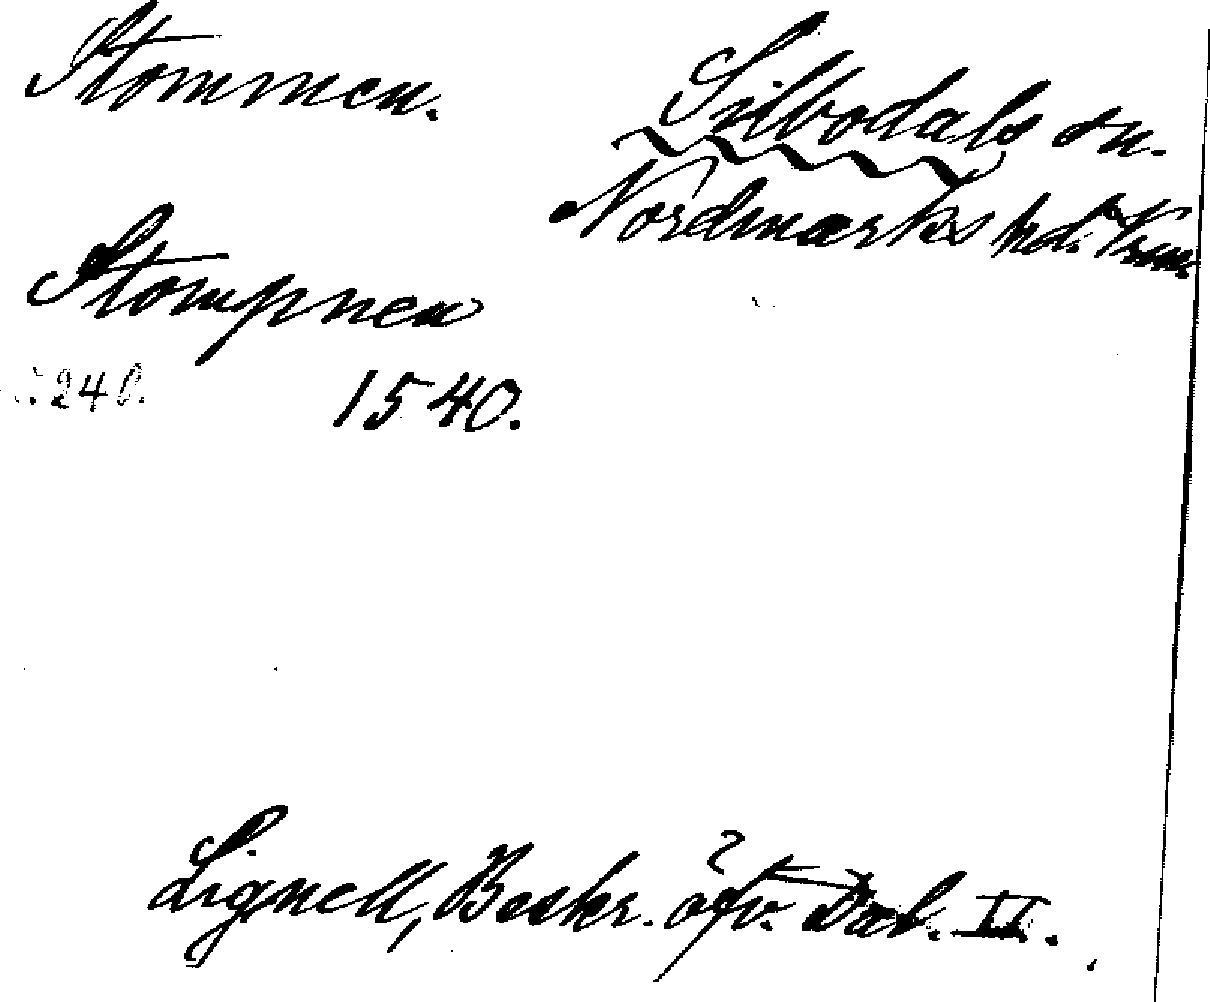 Stommen.
Silbodals sn.
Nordmarks hd. Vrml.
Stompnen
240.
1540.
Lignell, Beskr. öfv. Dal. II.